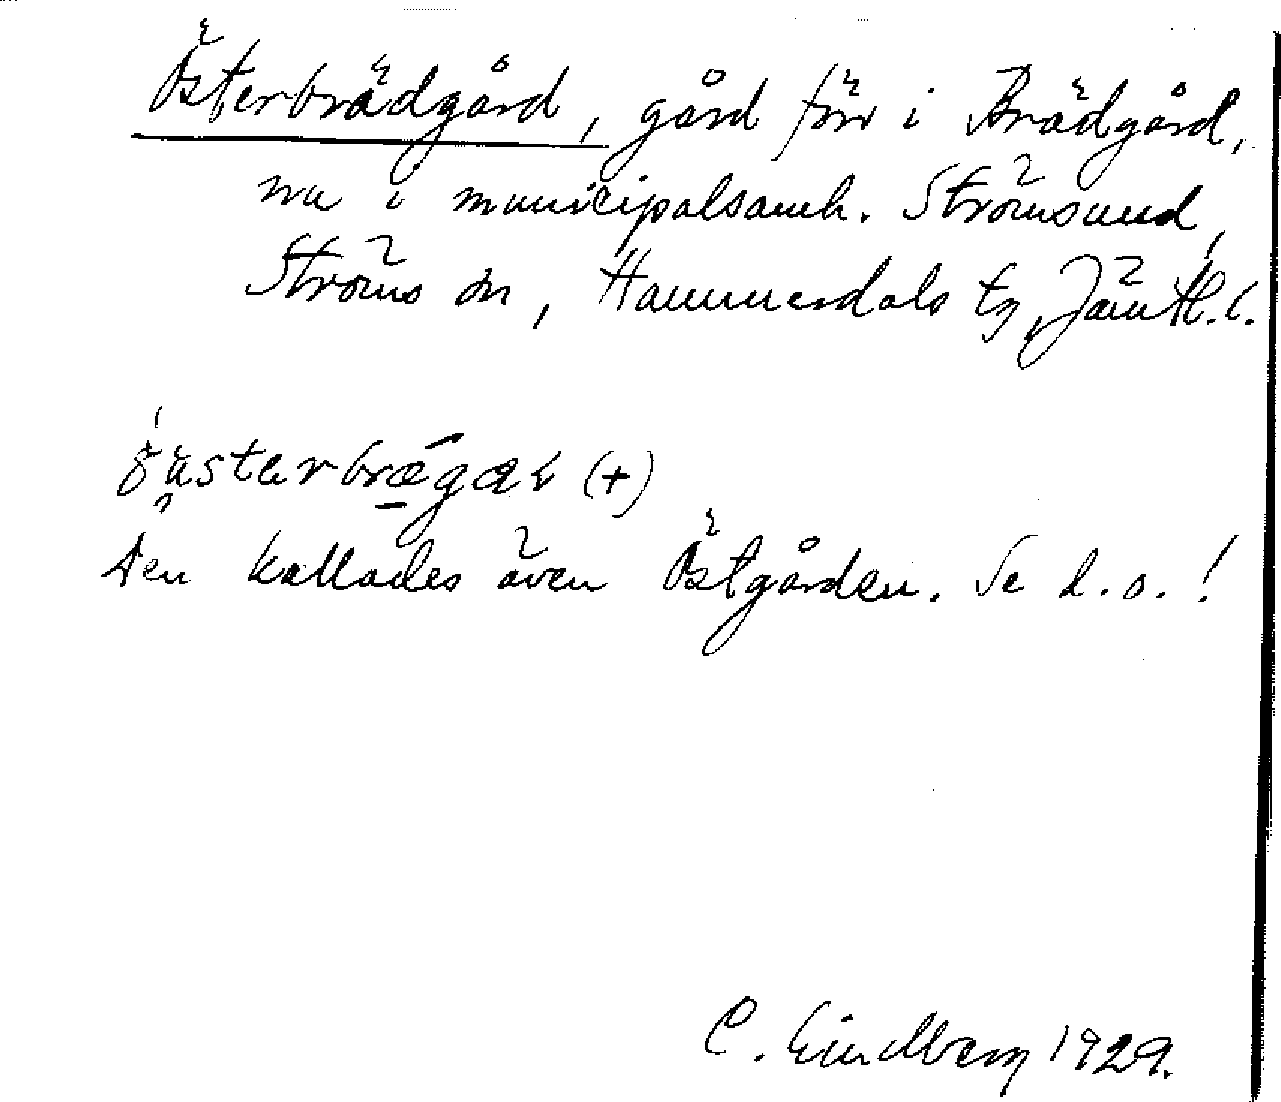 Österbrädgård, gård förr i Brädgård,
nu i municipalsamh. Strömsund,
Ströms sn, Hammerdals tg, Jämtl. l.
(+)
Den kallades även Östgården. Se d. o. !
C. Lindberg 1929.